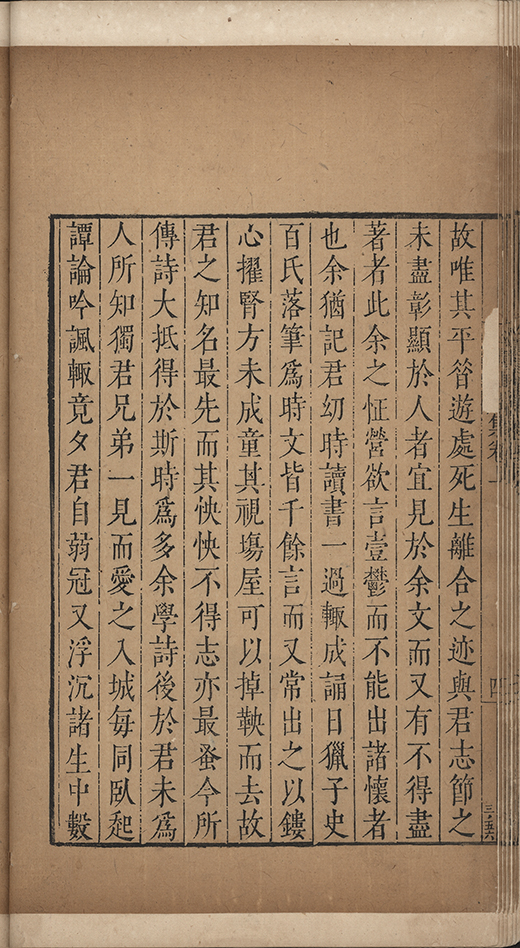 集卷一
四
三·五六
故唯其平昝遊處死生離合之迹與君志節之
未盡彰顯於人者宜見於余文而又有不得盡
著者此余之怔營欲言壹鬱而不能出諸懷者
也余猶記君幼時讀書一過輒成誦日獵子史
百氏落筆爲時文皆千餘言而又常出之以鏤
心擢腎方未成童其視塲屋可以掉鞅而去故
君之知名最先而其怏怏不得志亦最蚤今所
傳詩大抵得於斯時爲多余學詩後於君未爲
人所知獨君兄弟一見而愛之入城每同臥起
譚論吟諷輒竟夕君自蒻冠又浮沉諸生中數